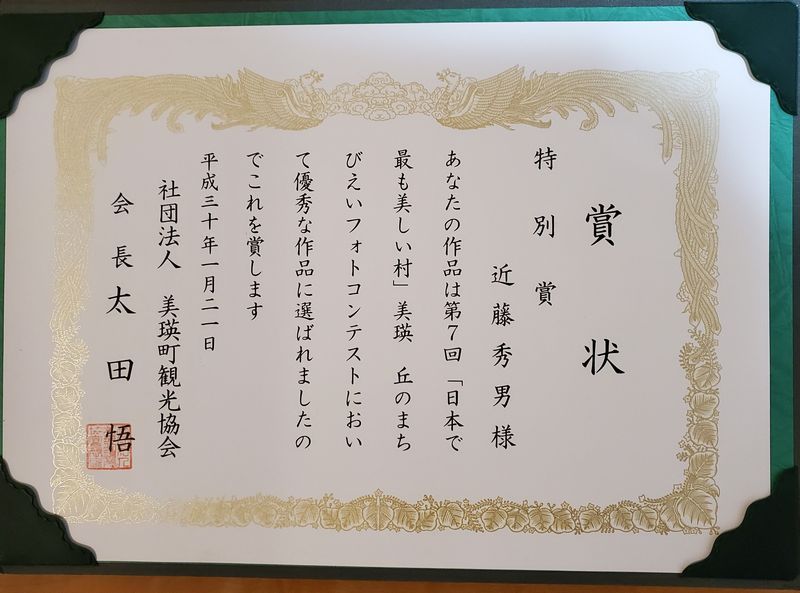 賞状
特別賞
近藤秀男様
あなたの作品は第7回「日本で
最も美しい村」美瑛 丘のまち
びえいフォトコンテストにおい
て優秀な作品に選ばれましたの
でこれを賞します
平成三十年一月二一日
社団法人 美瑛町観光協会
会長太田悟